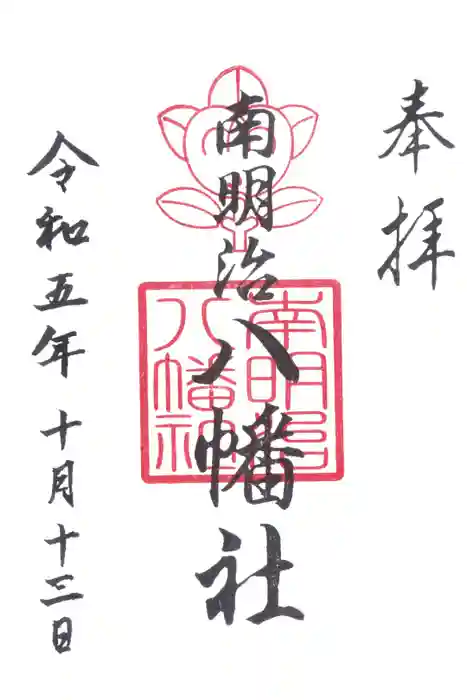 奉拝
南明治八幡社
南明治
八幡社
令和五年十月十三日